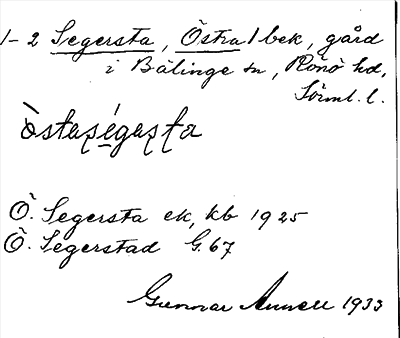 1-2 Segersta, Östra 1 bek, gård
i Bälinge sn, Rönö hd,
Sörml. l.
östaségasta
Ö. Segersta ek, kb 1925
Ö. Segerstad G.67
Gunnar Annell 1933